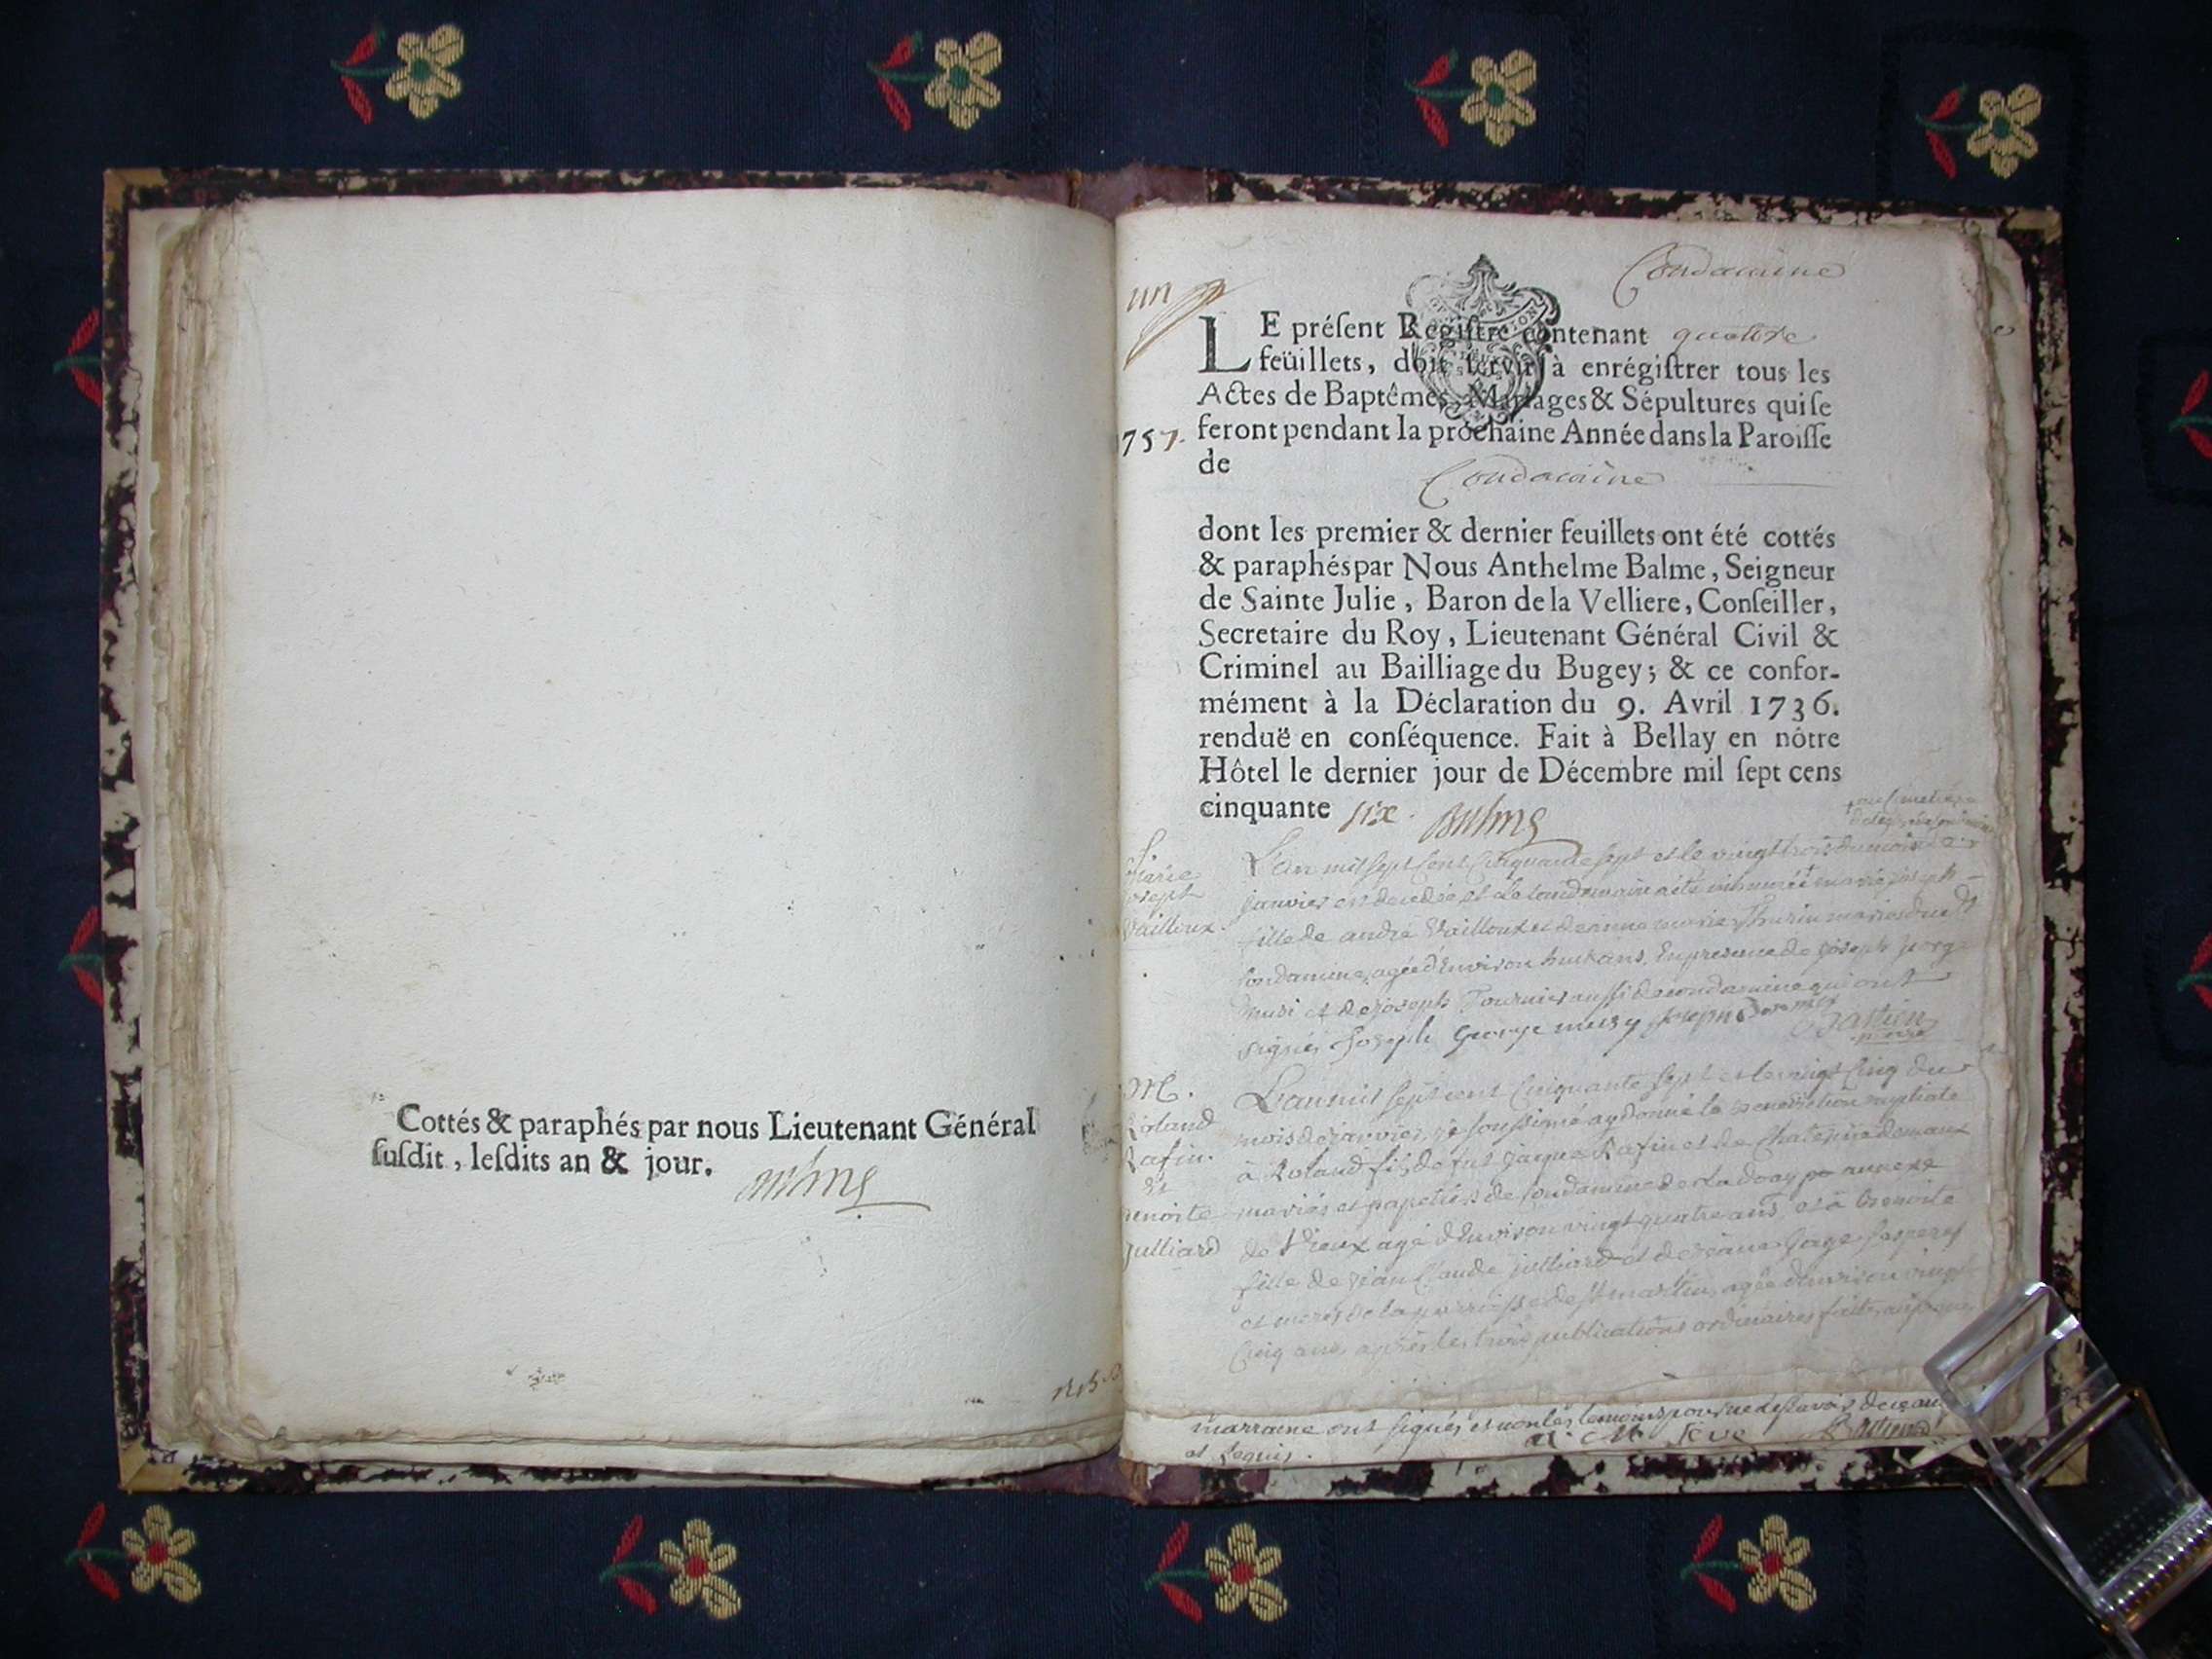 Cottés & paraphés par nous Lieutenant Général
ſuſdit, leſdits an & jour.
un
Condamine
LE préſent Regiſtre contenant quatorze
feüillets, doit ſervir à enrégiſtrer tous les
Actes de Baptêmes, Mariages & Sépultures qui ſe
1757. feront pendant la prochaine Année dans la Paroiſſe
de Condamine
dont les premier & dernier feuillets ont été cottés
& paraphés par Nous Anthelme Balme, Seigneur
de Sainte Julie, Baron de la Velliere, Conſeiller,
Secretaire du Roy, Lieutenant Général Civil &
Criminel au Bailliage du Bugey; & ce confor-
mément à la Déclaration du 9. Avril 1736.
renduë en conſéquence. Fait à Bellay en nôtre
Hôtel le dernier jour de Décembre mil ſept cens
cinquante six. Balme
Marie
joseph
Vailloux.
L'an mil sept cent cinquante sept et le vingt trois du mois de
janvier est decedée et le landemain a été inhumée marie joseph
fille de andré Vailloux et de anne marie Thurin mariés dud
Condamine, agée d'environ huit ans, En presence de joseph jorge
musi et de joseph Tournier aussi de condamine qui ont
signés Joseph George musy joseph Bastien
M.
Roland
Rafin.
Et
benoite
Julliard
L'an mil sept cent cinquante sept et le vingt cinq du
mois de janvier, je soussigné ay donné la benediction nuptiale
à Roland fils de fut jaque Rafin et de
mariés et papetiers de Condamine de la Doay annexe
de Vieux agé d'Environ vingt quatre ans, et à benoite
fille de jean Claude julliard et de jeane ses peres
et meres de la parroisse de St martin, agée d'environ vingt
Cinq ans, après les trois publications ordinaires faites
marraine ont signés et non les temoins pour ne le sçavoir de ce
et Requis. Bastien